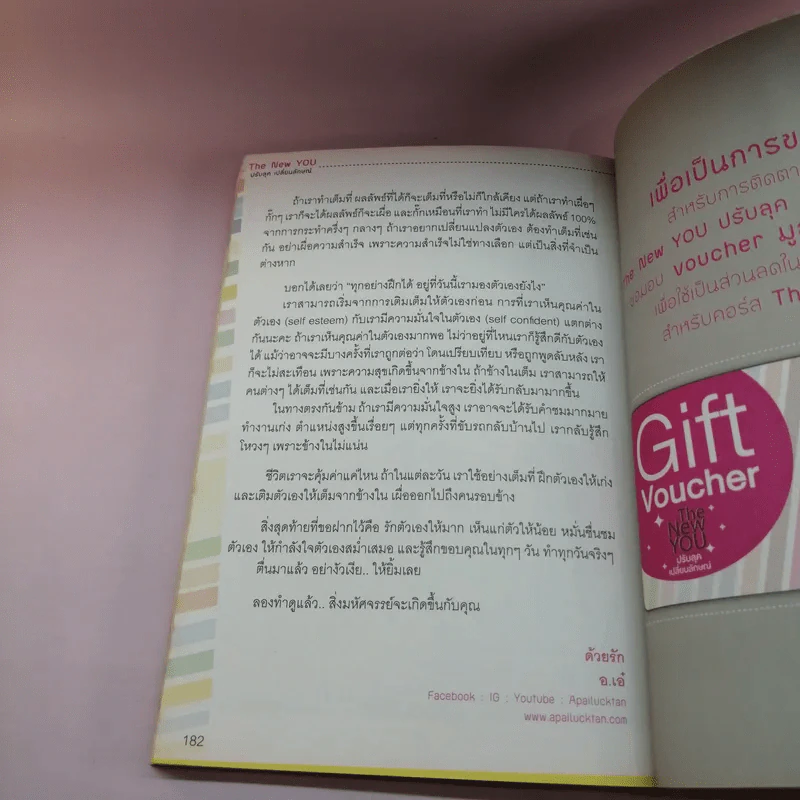 The New YOU
ปรับลุค เปลี่ยนลักษณ์
ถ้าเราทำเต็มที่ ผลลัพธ์ที่ได้ก็จะเต็มที่หรือไม่ก็ใกล้เคียง แต่ถ้าเราทำเผื่อๆ
กั๊กๆ เราก็จะได้ผลลัพธ์ก็จะเผื่อ และกั๊กเหมือนที่เราทำ ไม่มีใครได้ผลลัพธ์ 100%
จากการกระทำครึ่งๆ กลางๆ ถ้าเราอยากเปลี่ยนแปลงตัวเอง ต้องทำเต็มที่เช่น
กัน อย่าเผื่อความสำเร็จ เพราะความสำเร็จไม่ใช่ทางเลือก แต่เป็นสิ่งที่จำเป็น
ต่างหาก
บอกได้เลยว่า "ทุกอย่างฝึกได้ อยู่ที่วันนี้เรามองตัวเองยังไง"
เราสามารถเริ่มจากการเติมเต็มให้ตัวเองก่อน การที่เราเห็นคุณค่าใน
ตัวเอง (self esteem) กับเรามีความมั่นใจในตัวเอง (self confident) แตกต่าง
กันนะคะ ถ้าเราเห็นคุณค่าในตัวเองมากพอ ไม่ว่าอยู่ที่ไหนเราก็รู้สึกดีกับตัวเอง
ได้ แม้ว่าอาจจะมีบางครั้งที่เราถูกต่อว่า โดนเปรียบเทียบ หรือถูกพูดลับหลัง เรา
ก็จะไม่สะเทือน เพราะความสุขเกิดขึ้นจากข้างใน ถ้าข้างในเต็ม เราสามารถให้
คนต่างๆ ได้เต็มที่เช่นกัน และเมื่อเรายิ่งให้ เราจะยิ่งได้รับกลับมามากขึ้น
ในทางตรงกันข้าม ถ้าเรามีความมั่นใจสูง เราอาจจะได้รับคำชมมากมาย
ทำงานเก่ง ตำแหน่งสูงขึ้นเรื่อยๆ แต่ทุกครั้งที่ขับรถกลับบ้านไป เรากลับรู้สึก
โหวงๆ เพราะข้างในไม่แน่น
ชีวิตเราจะคุ้มค่าแค่ไหน ถ้าในแต่ละวัน เราใช้อย่างเต็มที่ ฝึกตัวเองให้เก่ง
และเติมตัวเองให้เต็มจากข้างใน เผื่อออกไปถึงคนรอบข้าง
สิ่งสุดท้ายที่ขอฝากไว้คือ รักตัวเองให้มาก เห็นแก่ตัวให้น้อย หมั่นชื่นชม
ตัวเอง ให้กำลังใจตัวเองสม่ำเสมอ และรู้สึกขอบคุณในทุกๆ วัน ทำทุกวันจริงๆ
ตื่นมาแล้ว อย่างัวเงีย.. ให้ยิ้มเลย
ลองทำดูแล้ว.. สิ่งมหัศจรรย์จะเกิดขึ้นกับคุณ
ด้วยรัก
อ.เอ๋
Facebook : IG : Youtube : Apailucktan
www.apailucktan.com
182
เพื่อเป็นการข
สำหรับการติดตา
The New YOU ปรับลุค
ขอมอบ voucher มู
เพื่อใช้เป็นส่วนลดใน
สำหรับคอร์ส Th
Gift
Voucher
The
New
YOU
ปรับลุค
เปลี่ยนลักษณ์